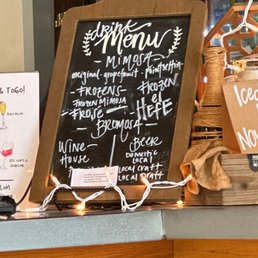 drink
Menu
MIMOSA
original · grapefruit · poinsettia
FROZENS
FROZEN
FROZEN MIMOSA
HEFE
FROSE
BROMOSA
WINE
HOUSE
BEER
DOMESTIC
LOCAL
LOCAL CRAFT
LOCAL CRAFT
& TOGO!
Iced
NOW